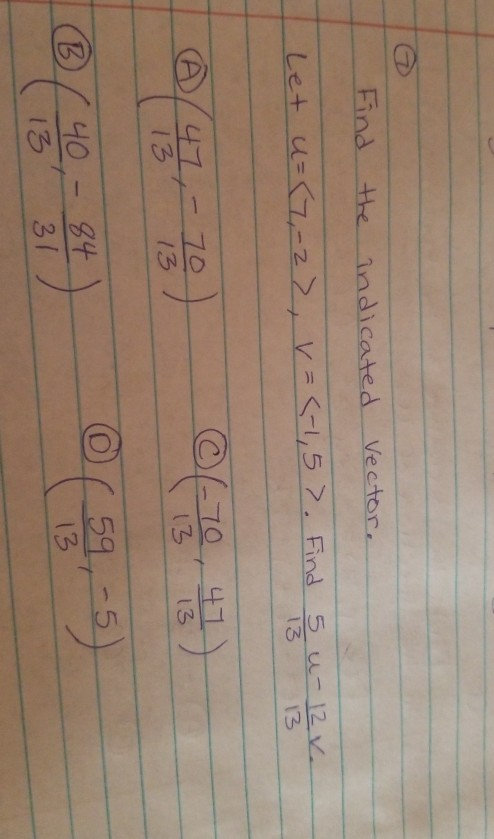 ⑦
Find the indicated vector.
Let u=<7,-2>, v=<-1,5>. Find 5/13 u - 12/13 v.
Ⓐ (47/13, -70/13) Ⓒ (-70/13, 47/13)
Ⓑ (40/13, -84/31) Ⓓ (59/13, -5)